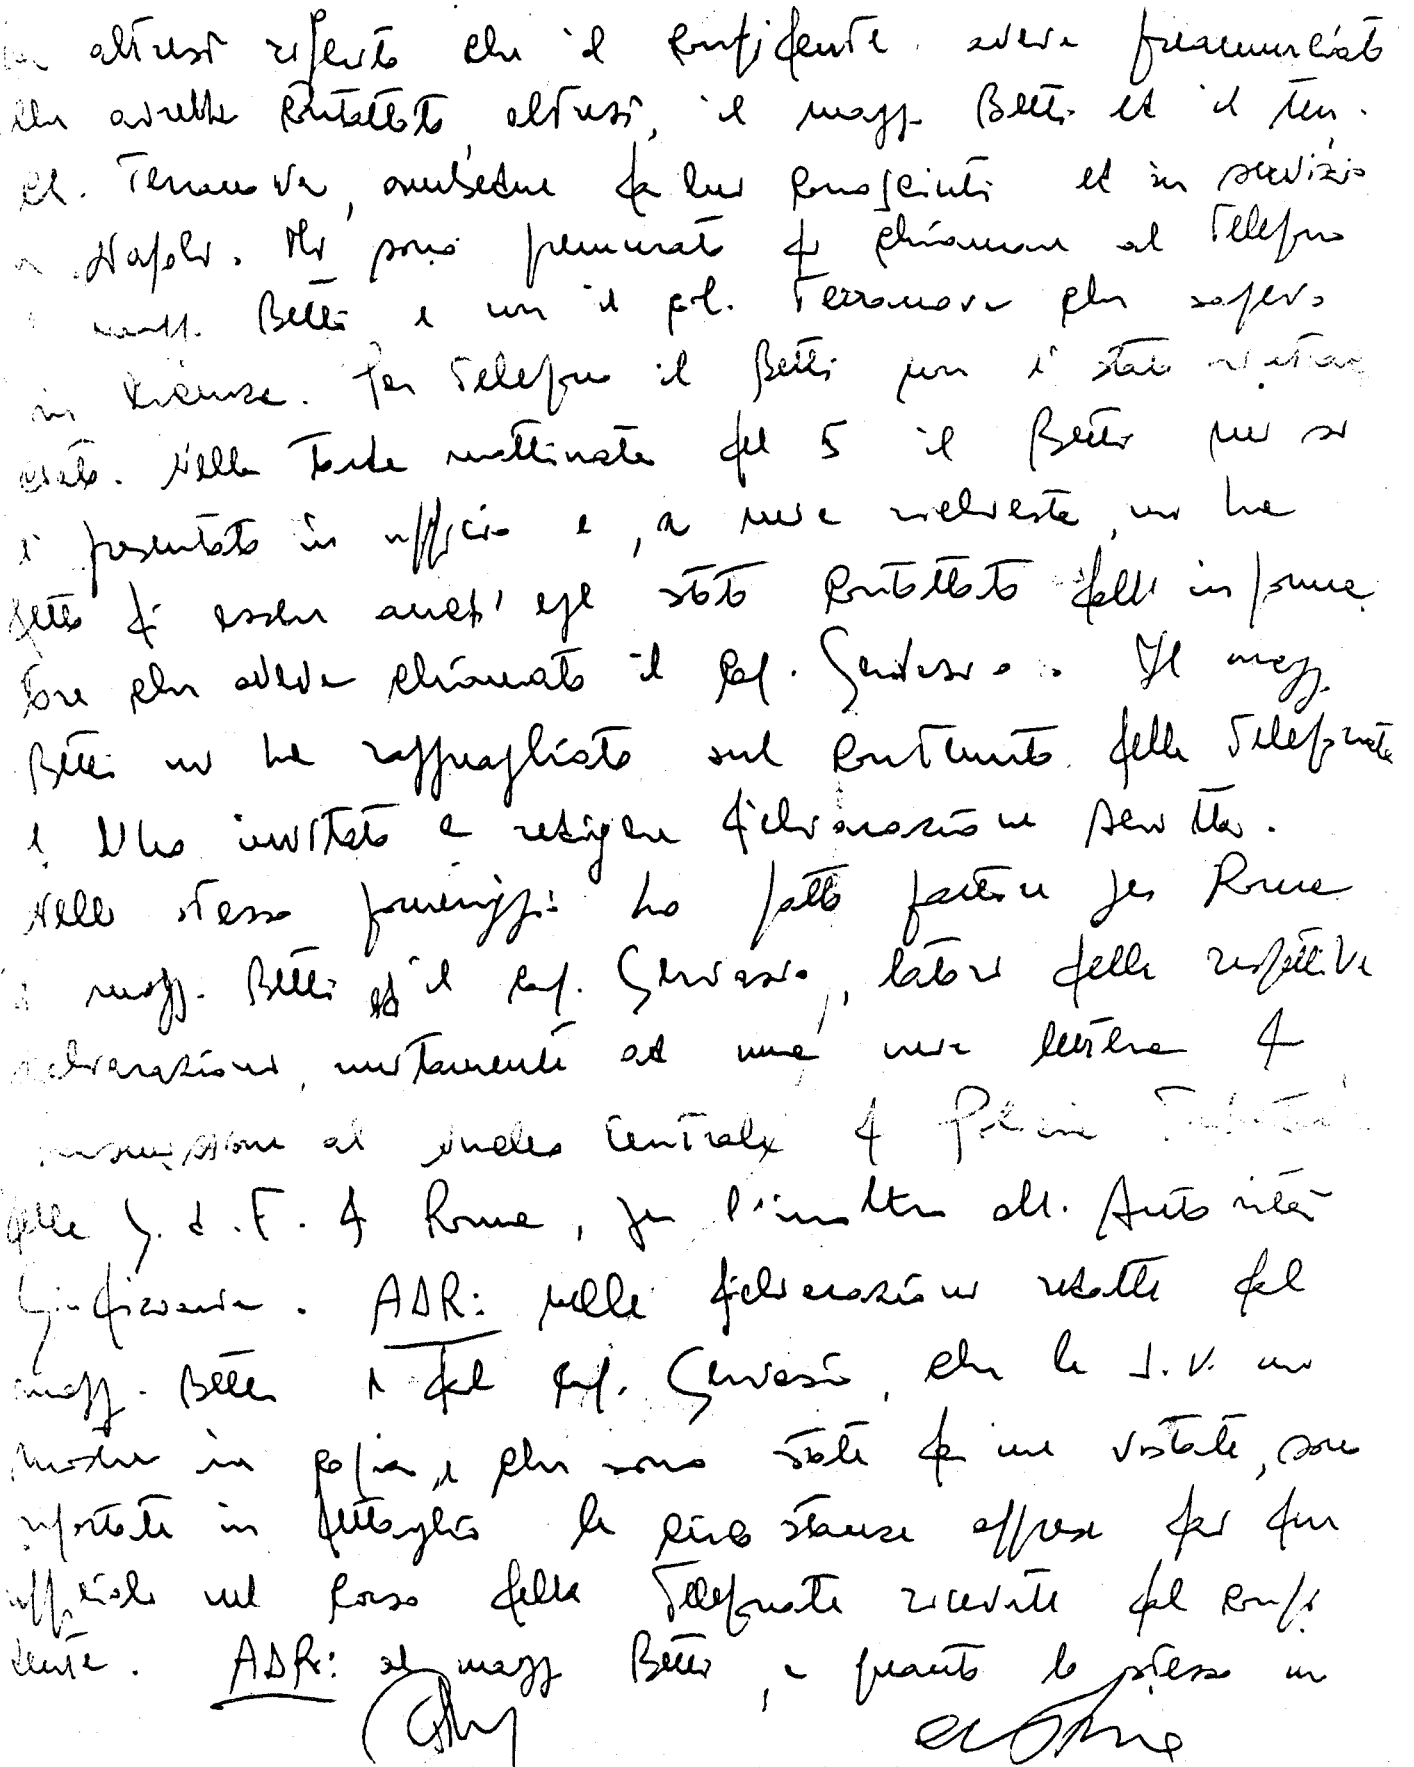 altresì riferito che il confidente aveva preannunciato
che avrebbe contattato altresì, il magg. Betti ed il ten.
col. Terranova, ambedue da lui conosciuti ed in servizio
a Napoli. Mi sono premurato di chiamare al telefono
il magg. Betti e non il col. Terranova che sapevo
in licenza. Per telefono il Betti non è stato rintrac
ciato. Nella tarda mattinata del 5 il Betti mi si
è presentato in ufficio e, a mia richiesta, mi ha
detto di essere anch'egli stato contattato dall'informa
tore che aveva chiamato il cap. Gervasio. Il magg.
Betti mi ha ragguagliato sul contenuto della telefonata
e l'ho invitato a redigere dichiarazione scritta.
Nello stesso pomeriggio ho fatto partire per Roma
il magg. Betti ed il cap. Gervasio, latori delle rispettive
dichiarazioni, unitamente ad una mia lettera di
trasmissione al Nucleo Centrale di Polizia Tributaria
della G. d. F. di Roma, per l'inoltro all'Autorità
Giudiziaria. ADR: nelle dichiarazioni redatte dal
magg. Betti e dal cap. Gervasio, che la S.V. mi
mostra in copia, e che sono state da me vistate, sono
riportate in dettaglio le circostanze apprese dai due
ufficiali nel corso delle telefonate ricevute dal confi
dente. ADR: al magg. Betti, a quanto lo stesso mi